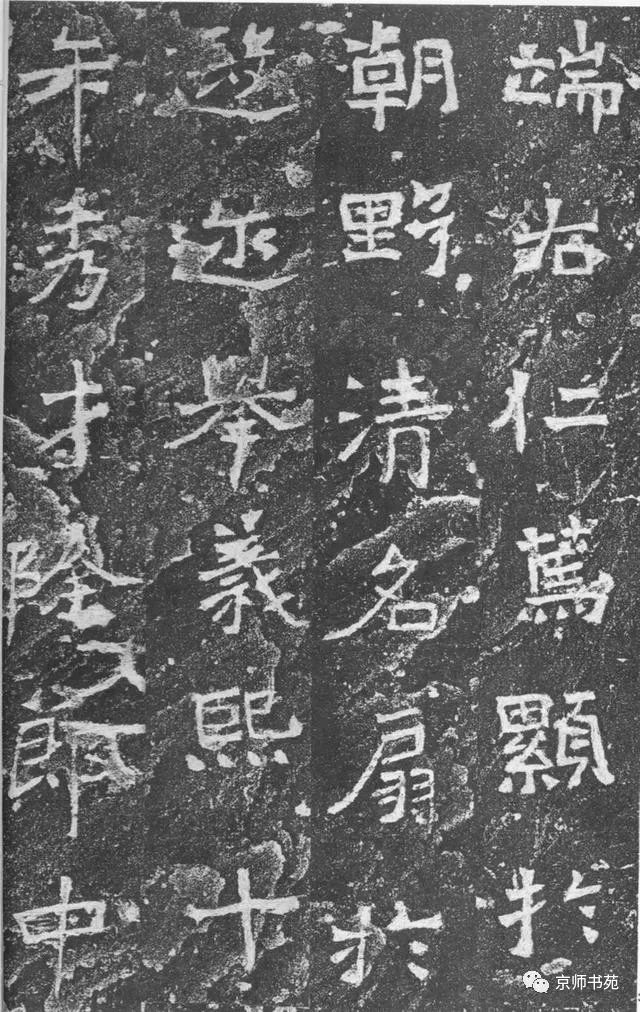 端右仁篤顯於
朝野清名扇於
遐迩举義熙十
年秀才除郎中
京师书苑